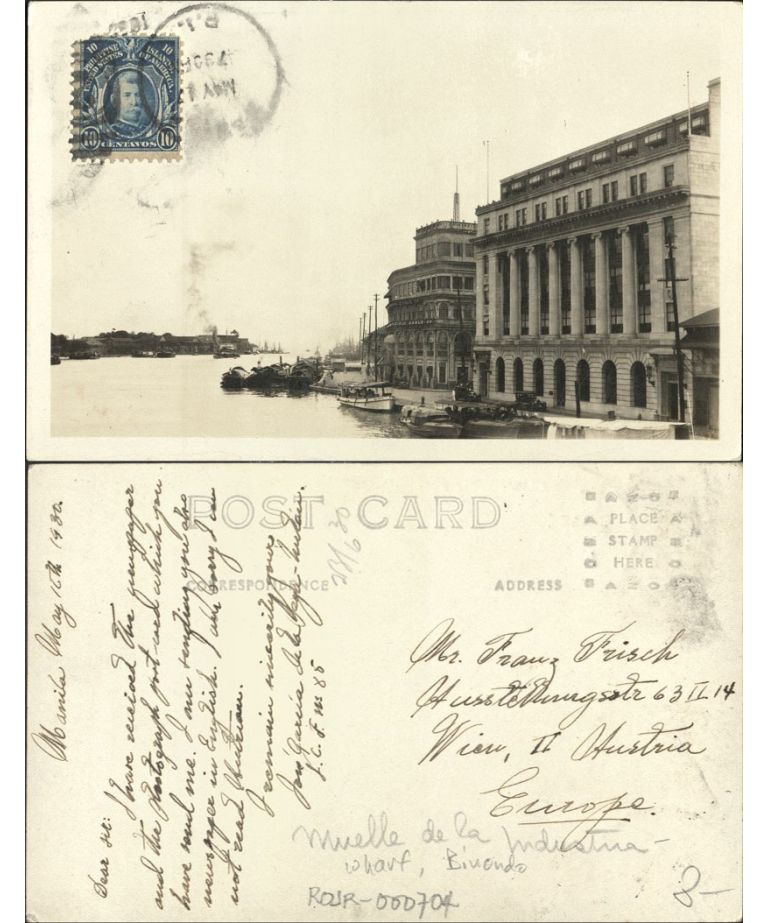 10 10
PHILIPPINE ISLANDS
UNITED STATES OF AMERICA
10 CENTAVOS 10
P.I.
MAY 1
POST CARD
CORRESPONDENCE
ADDRESS
AZO
PLACE
STAMP
HERE
AZO
Manila May 10th 1930.
Dear sir: I have received the newspaper
and the Photograph post card which you
have send me. I am sending you also
newspaper in English. I am sorry I can
not read Austrian.
I remain sincerely yours
Jose Garcia de la
L.C.F. No 85
28/6 30
Mr. Franz Frisch
Ausstellungsstr 63 II 14
Wien, II Austria
Europe.
Muelle de la Industria -
wharf, Binondo
ROJR-000704
8-